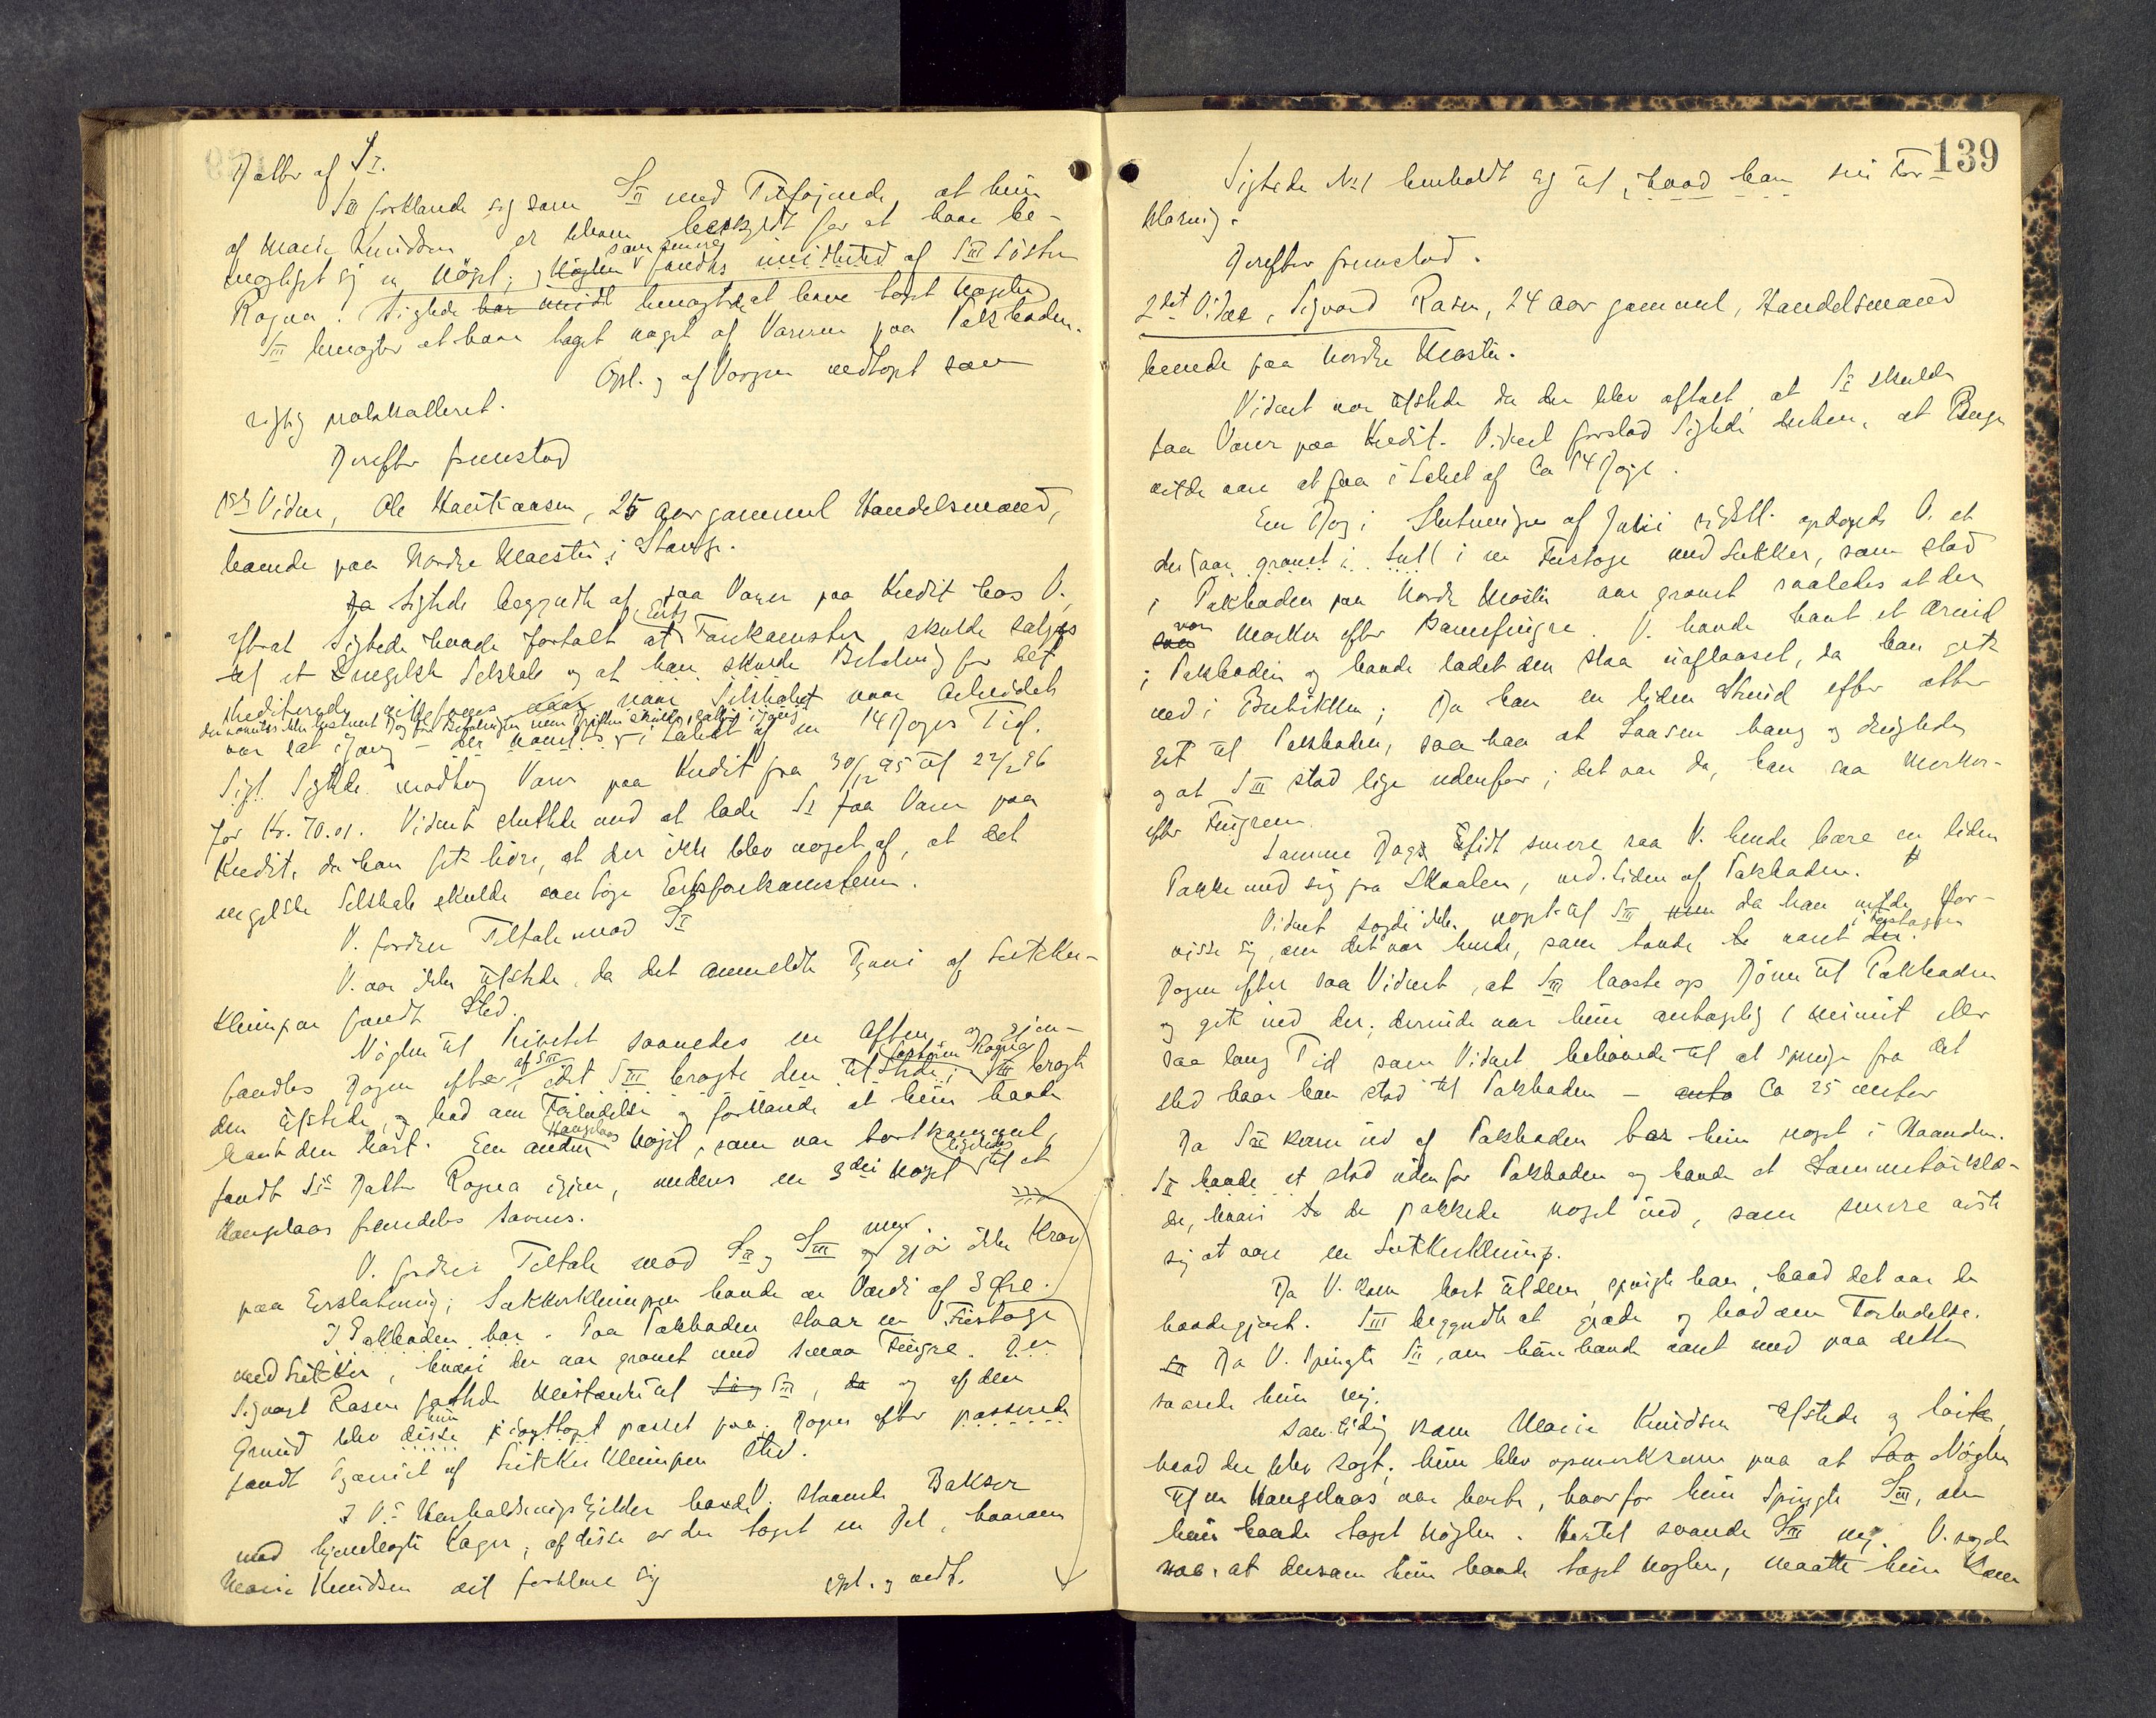 Datter af S I.
S III forklarede sig som S II med Tilføjende at hun
af Marie Knudsen er bleven beskyldt for at have be-
mægtiget sig en Nøgel; Nøglen som senere fandtes imidlertid af S III Søster
Ragna. Sigtede har imidl benegtede at have taget Nøglen
S III benegter at have taget noget af Varerne paa Pakboden.
Opl. og af Vorgen vedtaget som
rigtig protokolleret.
Derefter fremstod
1ste Vidne, Ole Kantiansen, 25 Aar gammel Handelsmand,
boende paa Nordre Kloster i Stange.
Da Sigtede begyndte at faa Varer paa Kredit hos V.,
efterat Sigtede havde fortalt at Erts Forekomster skulde sælges
til et Engelsk Selskab og at han skulde Betaling for det
Krediterede naar Selskabet var Arbeidet
der nævntes ikke bestemt Dag for Betalingen men Driften skulde sættes igang
var sat igang – der nævntes i Løbet af en 14 Dages Tid.
Sigt. Sigtede modtog Varer paa Kredit fra 30/12 95 til 22/2 96
for Kr. 70.01. Vidnet sluttede med at lade S I faa Varer paa
Kredit, da han fik høre, at der ikke blev noget af, at det
engelske Selskab skulde overtage Ertsforekomsterne.
V. fordrer Tiltale mod S I
V. var ikke tilstede, da det anmeldte Tyveri af Sukker-
klumpen fandt Sted.
Nøglen til savnedes en Aften og gjen-
fandtes Dagen efter af S III, idet S III bragte den tilstede; Søsteren Ragna S III bragte
den tilstede, og bad om Forladelse og forklarede at hun havde
kastet den bort. En anden Hængelaas Nøgel, som var bortkommet,
fandt S I's Datter Ragna igjen, medens en 3die Nøgel ligeledes til et
Hængelaas fremdeles savnes.
V. fordrer Tiltale mod S II og S III og gjør ikke Krav
paa Erstatning; Sukkerklumpen havde en Værdi af 3 Øre.
I Pakboden har. Paa Pakboden staar en Fustage
med Sukker, hvori der var gravet med smaa Fingre. Den
Sigvart Rasen fattede Mistanke til S II og S III, da og af den
Grund blev disse hun iagttaget passet paa. Dagen efter passerede
fandt Tyveriet af Sukkerklumpen Sted.
I V.s Husholdnings havde V. staaende Bakser
med hjemlagte Kager; af disse er der taget en Del, hvorom
Marie Knudsen vil forklare sig opl. og vedt.
139
Sigtede No 1 henholdt sig til, hvad han sin For-
klaring.
Derefter fremstod.
2det Vidne, Sigvard Rasen, 24 Aar gammel, Handelsmand
boende paa Nordre Kloster.
Vidnet var tilstede da der blev aftalt, at S I skulde
faa Varer paa Kredit. Vidnet forstod Sigtede derhen, at Penge
vilde være at faa i Løbet af Ca 14 Dage.
En Dag i Slutningen af Juli sidstl. opdagede V. at
der var gravet i Hull i en Fustage med Sukker, som stod
i Pakboden paa Nordre Kloster var gravet saaledes at der
saa var Mærker efter Barnefingre. V. havde havt et Ærind
i Pakboden og havde ladet den staa uaflaaset, da han gik
ned i Butikken; Da han en liden Stund efter atter
gik til Pakboden, saa han at Laasen hang og dinglede
og at S III stod lige udenfor; det var da, han saa Merker-
efter Fingrene.
Samme Dags Eftdt senere saa V. hende bære en liden
Pakke med sig fra Skaalen, ved Siden af Pakboden.
Vidnet sagde ikke noget til S III men da han vilde for-
visse sig, om det var hende, som havde be været der i Fustagen
Dagen efter saa Vidnet, at S III laaste op Døren til Pakboden
og gik ind der; derinde var hun antagelig 1 Minut eller
saa lang Tid som Vidnet behøvede til at springe fra det
Sted hvor han stod til Pakboden – anta Ca 25 Meter
Da S III kom ud af Pakboden bar hun noget i Haanden.
S II havde et stod udenfor Pakboden og havde et Lommetørklæ-
de, hvori to de pakkede noget ind, som senere viste
sig at være en Sukkerklump.
Da V. kom bort til dem, spurgte han, hvad det var de
havde gjort. S III begyndte at græde og bad om Forladelse.
S II Da V. spurgte S II, om hun havde været med paa dette
svarede hun nej.
Samtidig kom Marie Knudsen tilstede og hørte,
hvad der blev sagt; hun blev opmerksom paa at Laa Nøglen
til en Hængelaas var borte, hvorfor hun spurgte S III, om
hun havde taget Nøglen. Hertil svarede S III nej. V. sagde
saa, at dersom hun havde taget Nøglen, maatte hun kom